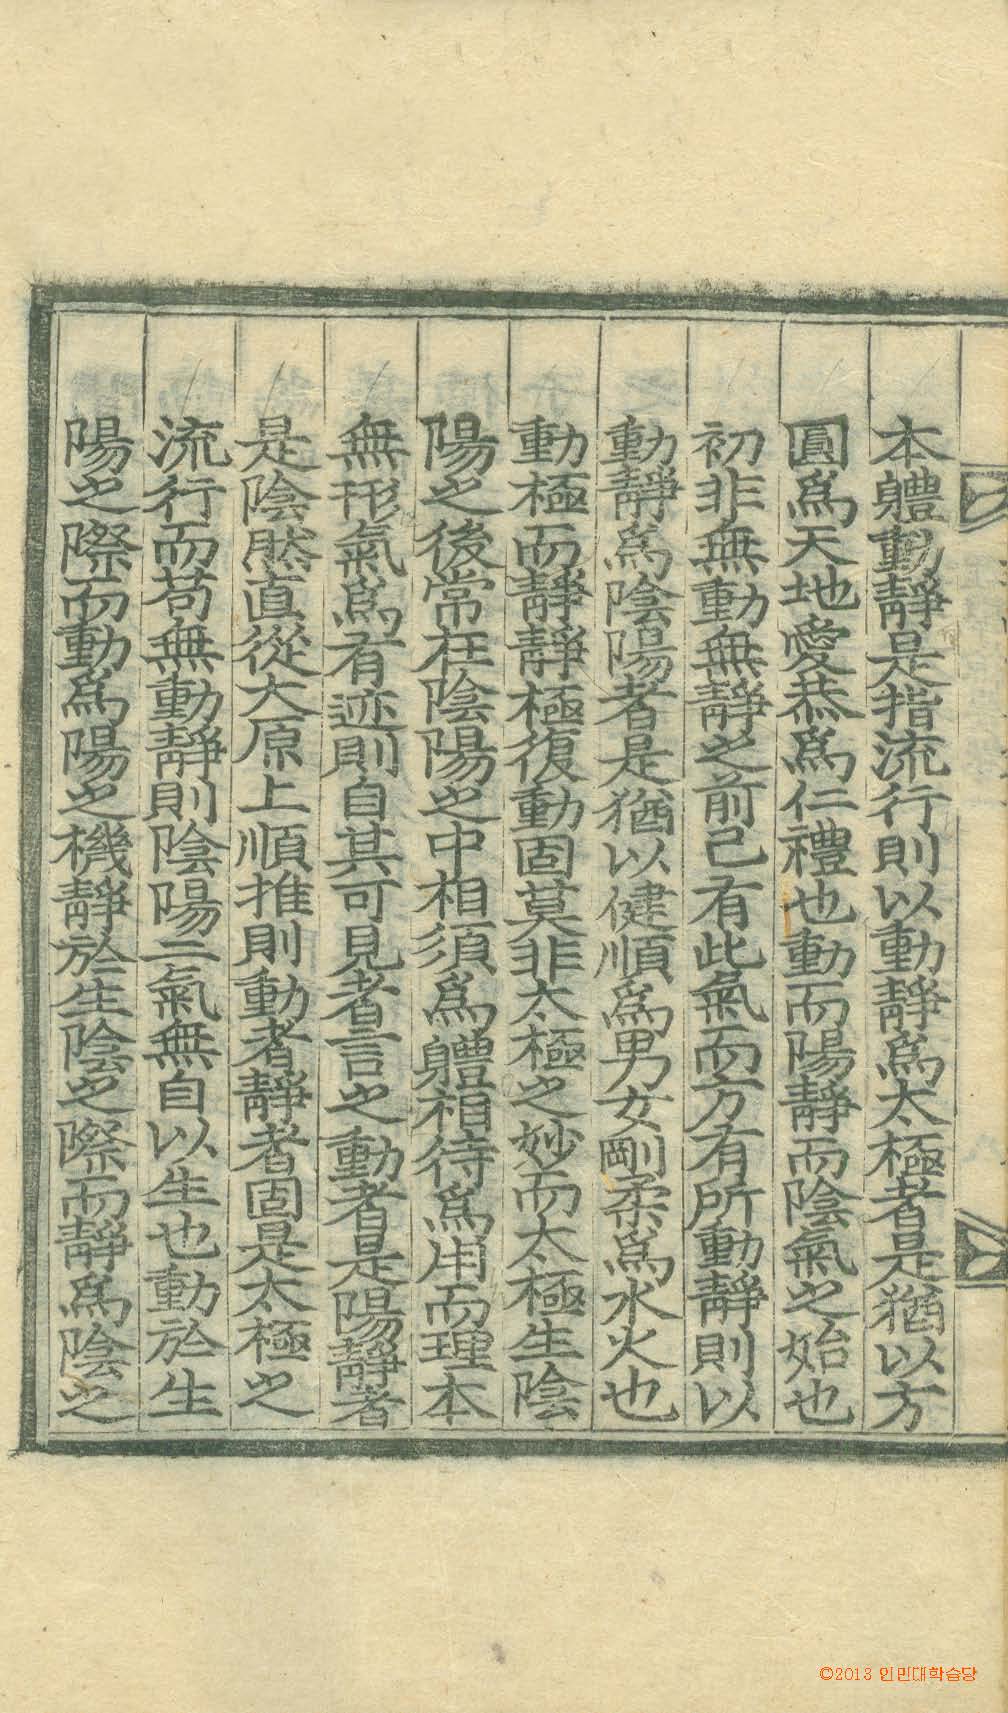 本軆動靜是指流行則以動靜爲太極者是猶以方
圓爲天地愛恭爲仁禮也動而陽靜而陰氣之始也
初非無動無靜之前己有此氣而方有所動靜則以
動靜爲陰陽者是猶以健順爲男女剛柔爲水火也
動極而靜靜極復動固莫非太極之妙而太極生陰
陽之後常在陰陽之中相須爲軆相待爲用而理本
無形氣爲有迹則自其可見者言之動者是陽靜者
是陰然直從大原上順推則動者靜者固是太極之
流行而苟無動靜則陰陽二氣無自以生也動於生
陽之際而動爲陽之機靜於生陰之際而靜爲陰之
©2013 인민대학습당